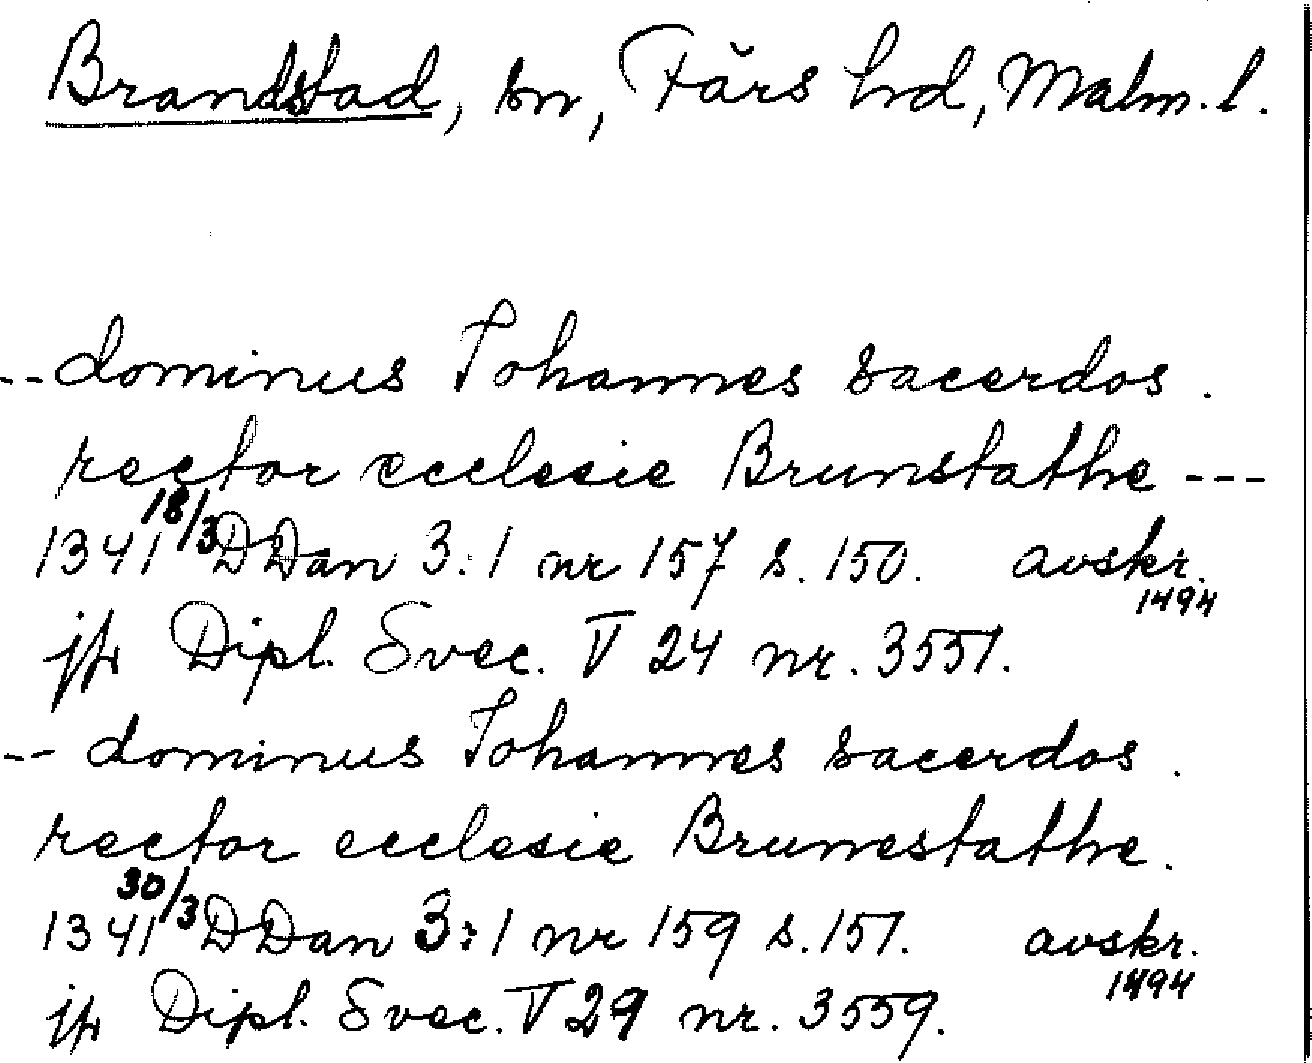 Brandstad, sn, Färs hd, Malm. l.
-- dominus Johannes sacerdos .
rector ecclesie Brunstathe ---
1341 18/3 DDan 3:1 nr 157 s. 150. avskr. 1494
jfr Dipl. Svec. V 24 nr. 3551.
-- dominus Johannes sacerdos .
rector ecclesie Brunestathe .
1341 30/3 DDan 3:1 nr 159 s. 151. avskr. 1494
jfr Dipl. Svec. V 29 nr. 3559.